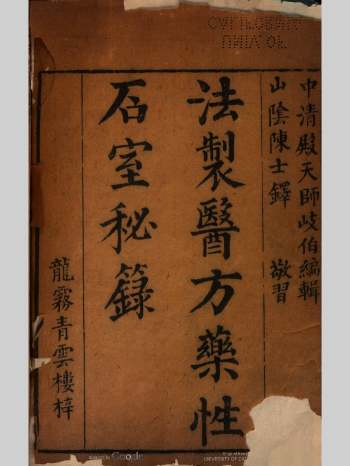 中清殿天師岐伯編輯
山陰陳士鐸 敬習
法製醫方藥性
石室秘籙
龍霧青雲樓梓
Google